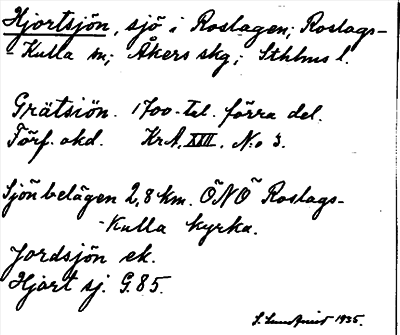 Hjortsjön, sjö i Roslagen; Roslags-
- Kulla sn; Åkers skg; Sthlms l.
Grätsiön. 1700-tal. förra del.
Förf. okd. KrA. XXII. No 3.
Sjön belägen 2,8 km. ÖNÖ Roslags-
-Kulla kyrka.
Jordsjön ek.
Hjort sj. G.85.
1935.